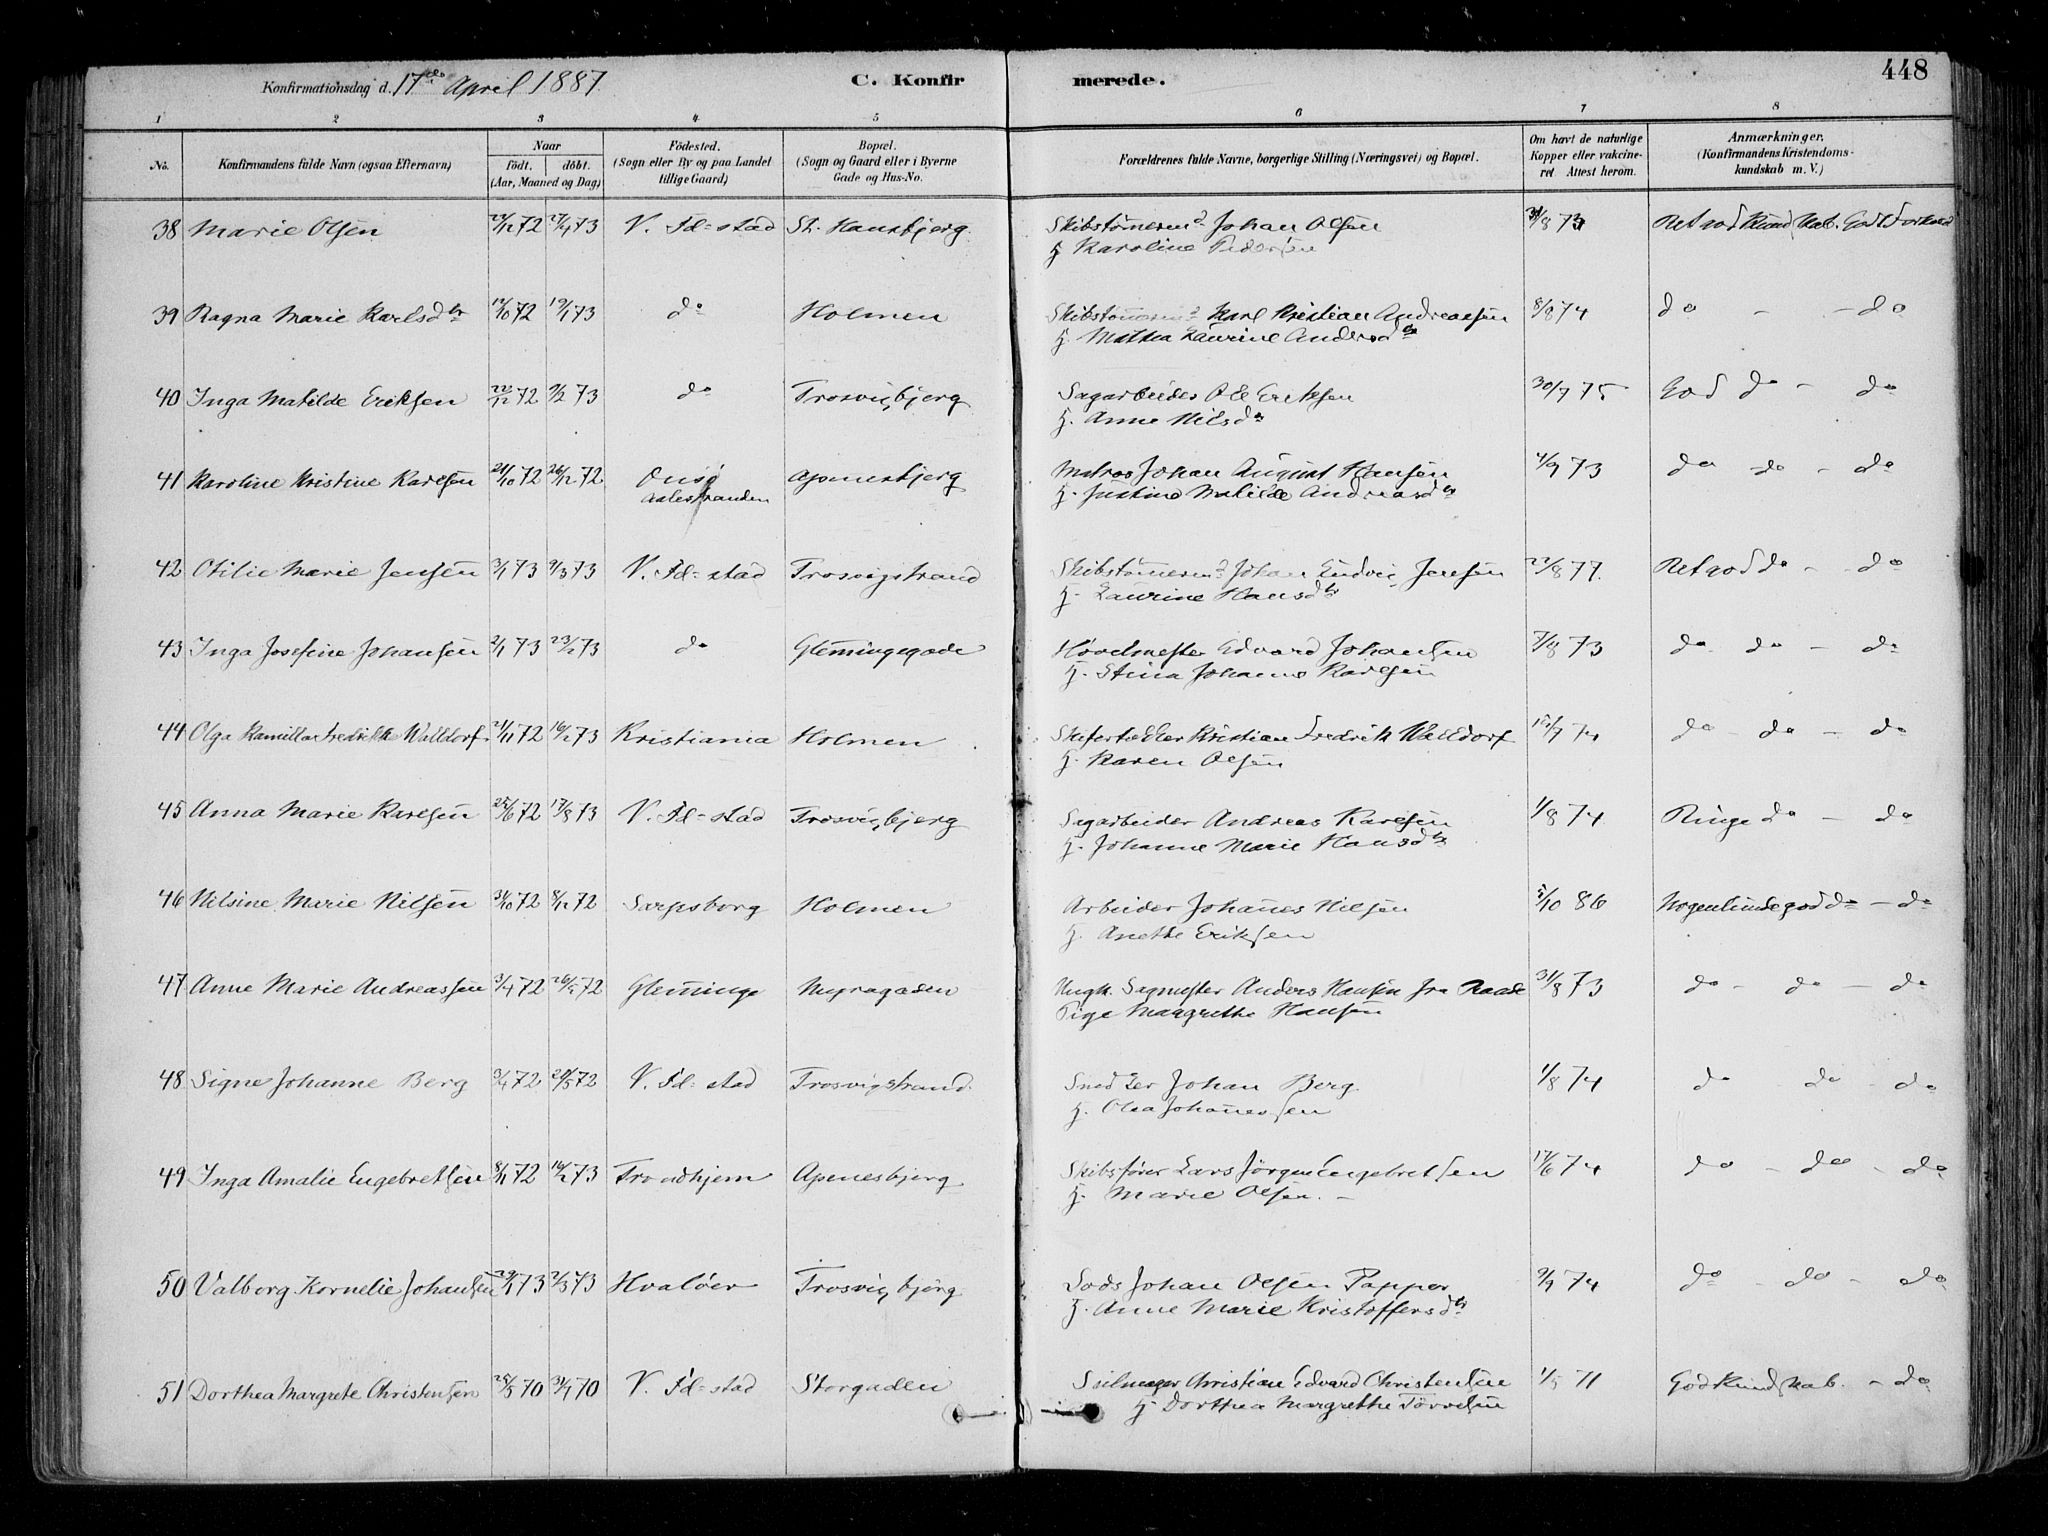 448
Konfirmationsdag d. 17de April 1887
C. Konfirmerede.
1 2 3 4 5 6 7 8
No. Konfirmandens fulde Navn (ogsaa Efternavn) Naar Födt. döbt. (Aar, Maaned og Dag) Födested. (Sogn eller By og paa Landet tillige Gaard) Bopæl. (Sogn og Gaard eller i Byerne Gade og Hus-No. Forældrenes fulde Navne, borgerlige Stilling (Næringsvei) og Bopæl. Om havt de naturlige Kopper eller vakcineret Attest herom. Anmærkninger. (Konfirmandens Kristendomskundskab m. V.)
38 Marie Olsen 72 27/4 73 V. Fd=stad St. Hansbjerg Skibstømmermd Johan Olsen Retgod Kundskab. Godt Forhold
H Karoline Pedersen
39 Ragna Marie Karlsdtr 72 19/1 73 do Holmen Skibstømmermd Karl Kristian Andreasen 8/8 74 do - - do
H. Mathea Laurine Andersdtr
40 Inga Matilde Eriksen 22/12 72 9/2 73 do Trosvigbjerg Sagarbeider Ole Eriksen 30/7 75 God do - do
H. Anne Nilsdr
41 Karoline Kristine Karlsen 21/10 72 26/12 72 Onsø Aalestranden Apenesbjerg Matros Johan August Hansen 4/9 73 do - do - do
H. Justine Matilde Andreasdtr
42 Otilie Marie Jensen 3/1 73 9/3 73 V. Fd=stad Trosvigstrand Skibstømmermd Johan Ludvig Jensen 22/8 77. Retgod do - do
H. Laurine Hansdtr
43 Inga Josefine Johansen 2/1 73 23/2 73 do Glemmingegade Høvelmester Edvard Johansen 7/8 73 do do - do
H. Stina Johanne Karlsen
44 Olga Kamilla Fredrikke Walldorf 21/11 72 16/2 73 Kristiania Holmen Skifertækker Kristian Fredrik Walldorf 15/7 74 do - do - do
H. Karen Olsen
45 Anna Marie Karlsen 25/6 72 17/8 73 V. Fd=stad Trosvigbjerg Sagarbeider Andreas Karlsen 1/8 74 Ringe do - do
H. Johanne Marie Hansdtr
46 Nilsine Marie Nilsen 31/10 72 8/12 72 Sarpsborg Holmen Arbeider Johannes Nilsen 5/10 86 Nogenlunde god do - do
H. Anethe Eriksen
47 Anne Marie Andreassen 3/4 72 26/5 72 Glemminge Myragaden Ungk. Sagmester Anders Hansen fra Raade 31/8 73 do - do - do
Pige Margrethe Hansen
48 Signe Johanne Berg 3/4 72 20/5 72 V. Fd=stad Trosvigstrand Snedker Johan Berg 1/8 74 do do - do
H. Olea Johannessen
49 Inga Amalie Engebretsen 8/11 72 16/2 73 Trondhjem Apenesbjerg Skibsfører Lars Jörgen Engebretsen 17/6 74 do - do - do
H. Marie Olsen. -
50 Valborg Kornelie Johansen 29/1 73 2/3 73 Hvaløer Trosvigbjerg Lods Johan Olsen Papper 9/9 74 do - do - do
H. Anne Marie Kristoffersdtr
51 Dorthea Margrete Christensen 25/5 70 31/7 70 V. Fd=stad Storgaden Seilmager Christian Edvard Christensen 1/5 71 God Kundskab. - do
H. Dorthea Margrethe Torvelsen